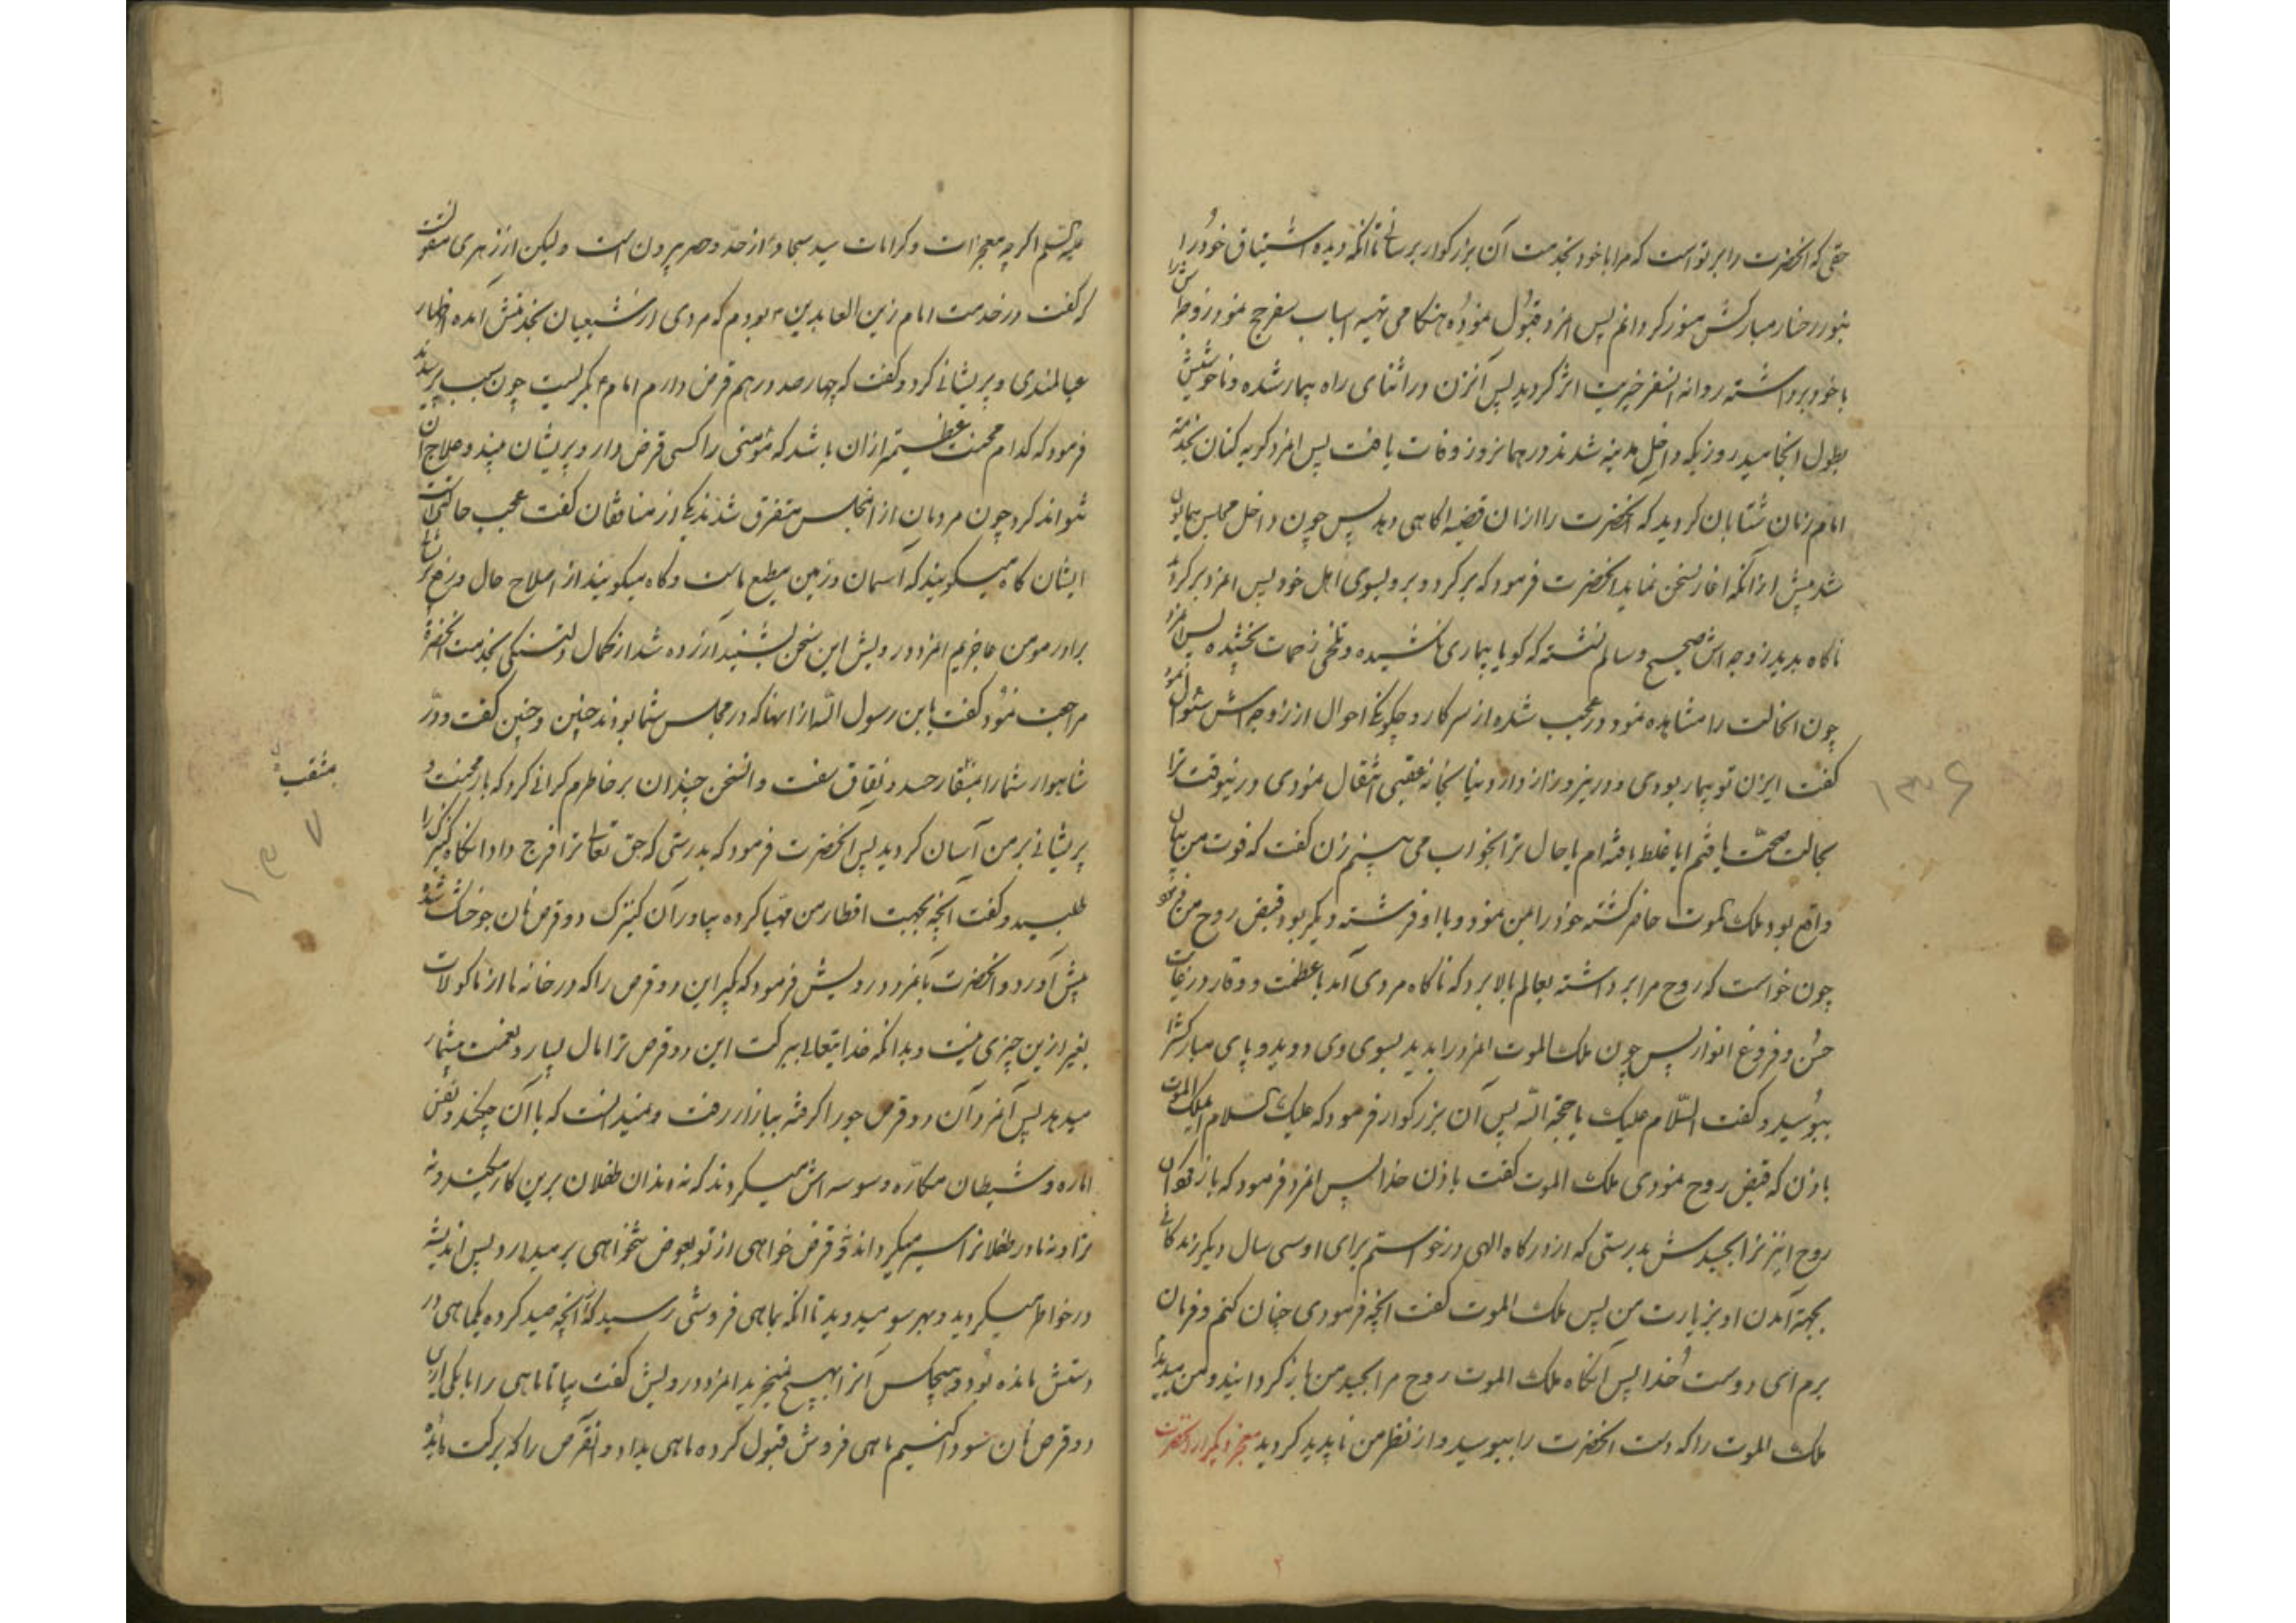 حقی که آنحضرت را بر تو است که مرا با خود بخدمت آن بزرکوار برسانی تا آنکه دیده اشتیاق خود را
بنور رخسار مبارکش منور کردانم پس امرد قبول نموده هنکامی تهیه اسباب سفر حج نمود زوجه اش را
با خود برداشته روانه انسفر خیریت اثر کردید پس آنزن در اثنای راه بیمار شده و ناخوشیش
بطول انجامید روزیکه داخل مدینه شدند در همانروز وفات یافت پس امرد کریه کنان بخدمت
امام زمان شتابان کردید که آنحضرت را ازان قضیه اکاهی دهد پس چون داخل مجلس همایون
شد پیش از آنکه اغاز سخن نماید آنحضرت فرمود که برکرد و برو بسوی اهل خود پس امرد برکردید
ناکاه بدید زوجه اش صحیح و سالم نشسته که کویا بیماری نکشیده و تلخی زحمات نچشیده پس امرد
چون انحالت را مشاهده نمود در عجب شده از سر کار و چکونکی احوال از زوجه اش سئوال نمود
کفت ایزن تو بیمار بودی و درین روز از دار دنیا بخانه عقبی انتقال نمودی درینوقت ترا
بحالت صحت یافتم ایا غلط یافته ام یا حال ترا بخواب می بینم زن کفت که فوت من بیان
واقع بود ملک الموت حاضر کشته خود را بمن نمود و با او فرشته دیکر بود قبض روح من نمود
چون خواست که روح مرا برداشته بعالم بالا برد که ناکاه مردی آمد با عظمت و وقار در غایت
حسن و فروغ انوار پس چون ملک الموت امرد را بدید بسوی وی دوید و پای مبارکش را
ببوسید و کفت السلام علیک یا حجة الله پس آن بزرکوار فرمود که علیک السلام ایملک الموت
باذن که قبض روح نمودی ملک الموت کفت باذن خدا پس امرد فرمود که باز کردان
روح اینزن را بجسدش بدرستی که از درکاه الهی درخواستم برای او سی سال دیکر زندکانی
بجهة آمدن او بزیارت من پس ملک الموت کفت آنچه فرمودی چنان کنم و فرمان
برم ای دوست خدا پس آنکاه ملک الموت روح مرا بجسد من باز کردانید و من میدیدم
ملک الموت را که دست آنحضرت را ببوسید و از نظر من ناپدید کردید معجز دیکر از آنحضرت
۱۳۶
علیه السلم اکرچه معجزات و کرامات سید سجاد از حد و حصر بیرون است ولیکن از زهری منقولست
که کفت در خدمت امام زین العابدین ع بودم که مردی از شیعیان بخدمتش آمده اظهار
عیالمندی و پریشانی کرد و کفت که چهار صد درهم قرض دارم امام ع بکریست چون سبب پرسیدند
فرمود که کدام محنت عظیمتر ازان باشد که مؤمنی را کسی قرض دار و پریشان بیند و علاج آن
نتواند کرد چون مردمان از انمجلس متفرق شدند یکی از منافقان کفت عجب حالتی است
ایشان کاه میکویند که آسمان و زمین مطیع ماست و کاه میکویند از اصلاح حال
برادر مومن عاجزیم امرد درویش این سخن بشنید آزرده شد از کمال دلتنکی بخدمت آنحضرة
مراجعت نمود کفت یابن رسول الله از انها که در مجلس شما بودند چنین و چنین کفت و در
شاهوار شما را بمثقار حسد و نفاق سفت و انسخن چندان بر خاطرم کرانی کرد که بار محنت و
پریشانی بر من آسان کردید پس آنحضرت فرمود که بدرستی که حق تعالی ترا فرج داد آنکاه کنیزکی را
طلبید و کفت آنچه بجهت افطار من مهیا کرده بیاور آن کنیزک دو قرص نان جو خشک شده
پیش آورد و آنحضرت بآنمرد درویش فرمود که بکیر این دو قرص را که در خانه ما از ماکولات
بغیر ازین چیزی نیست و بدانکه خدایتعالی ببرکت این دو قرص ترا مال بسیار و نعمت بیشمار
میدهد پس آنمرد آن دو قرص جو را کرفته ببازار رفت و نمیدانست که با آن چکند و نفس
اماره و شیطان مکاره وسوسه اش میکردند که نه دندان طفلان برین کار میکند و نه
ترا و نه مادر طفلانرا سیر میکرداند و قرض خواهی از تو بعوض نخواهی برمیدارد پس اندیشه
در خواطر میکردید و بهر سو میدوید تا آنکه بماهی فروشی رسید که از آنچه صید کرده یکماهی در
دستش مانده بود و هیچکس آنرا بهیچ نمیخرید امرد درویش کفت بیا تا ماهی را با یکی ازین
دو قرص نان سودا کنیم ماهی فروش قبول کرده ماهی بداد و انقرص را که برکت مایده
بمثقب
۱۳۷